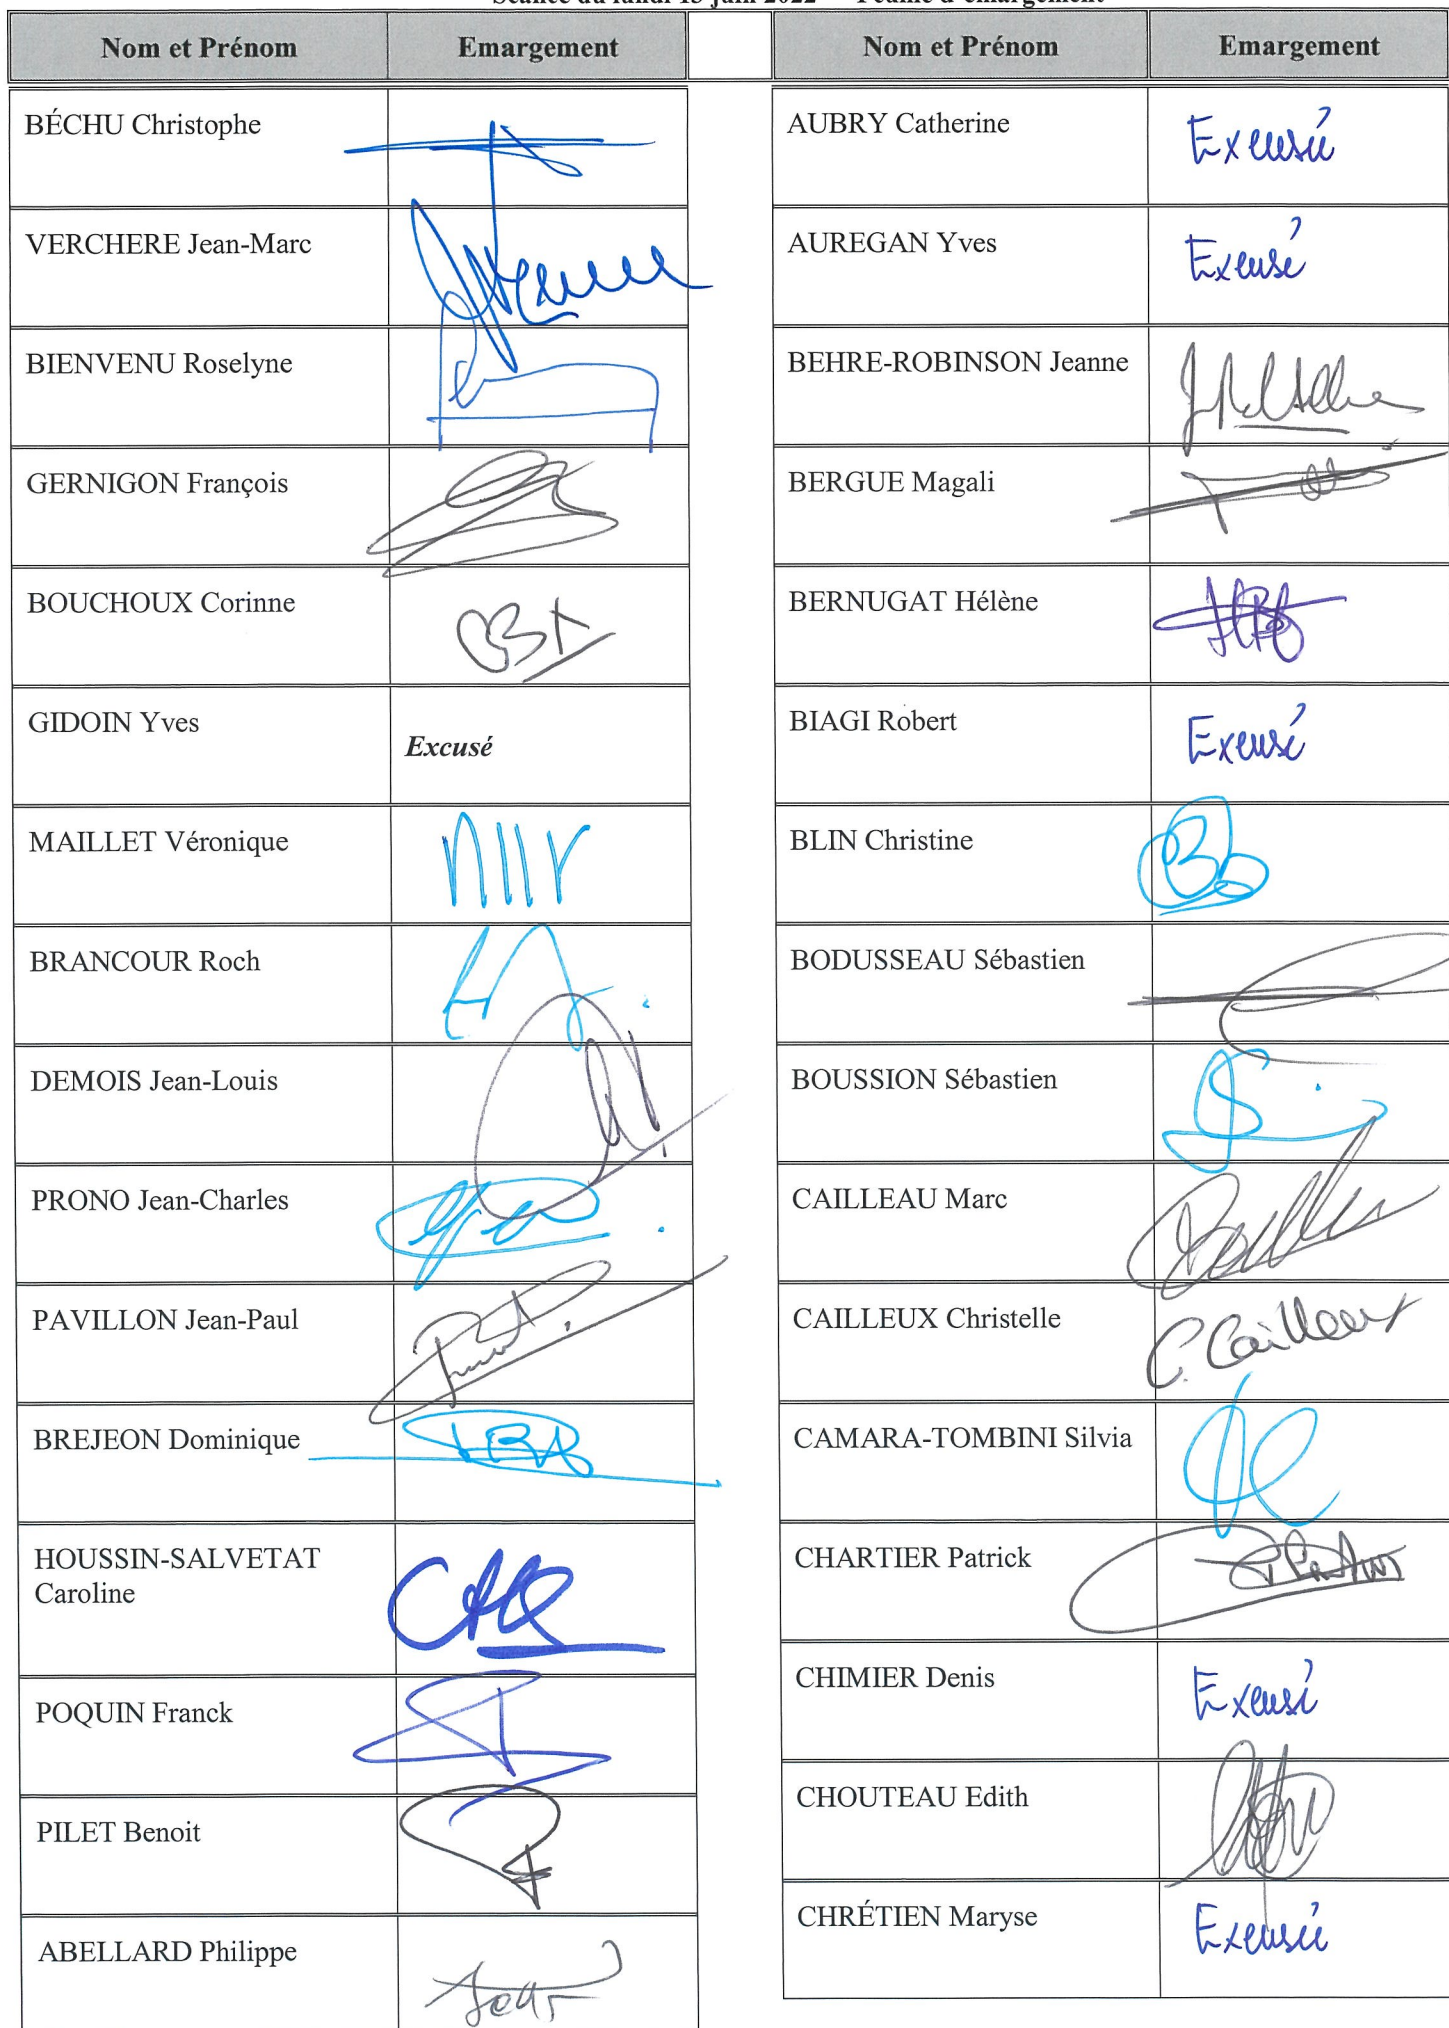 Séance du lundi 13 juin 2022 Feuille d'émargement
Nom et Prénom Emargement
BÉCHU Christophe
VERCHERE Jean-Marc
BIENVENU Roselyne
GERNIGON François
BOUCHOUX Corinne
GIDOIN Yves Excusé
MAILLET Véronique
BRANCOUR Roch
DEMOIS Jean-Louis
PRONO Jean-Charles
PAVILLON Jean-Paul
BREJEON Dominique
HOUSSIN-SALVETAT
Caroline
POQUIN Franck
PILET Benoit
ABELLARD Philippe
Nom et Prénom Emargement
AUBRY Catherine Excusée
AUREGAN Yves Excusé
BEHRE-ROBINSON Jeanne
BERGUE Magali
BERNUGAT Hélène
BIAGI Robert Excusé
BLIN Christine
BODUSSEAU Sébastien
BOUSSION Sébastien
CAILLEAU Marc
CAILLEUX Christelle C. Cailleux
CAMARA-TOMBINI Silvia
CHARTIER Patrick
CHIMIER Denis Excusé
CHOUTEAU Edith
CHRÉTIEN Maryse Excusée